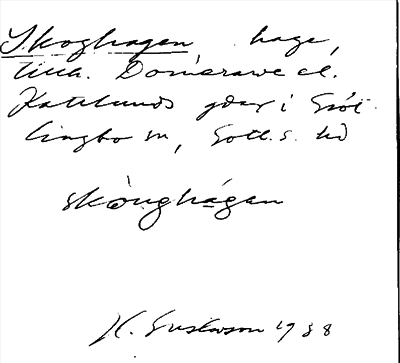 Skoghagen, hage,
till Domerarve el.
Katelunds gdar i Gröt-
lingbo sn, Gotl. s. hd
skòughágan
H. Gustavson 1938